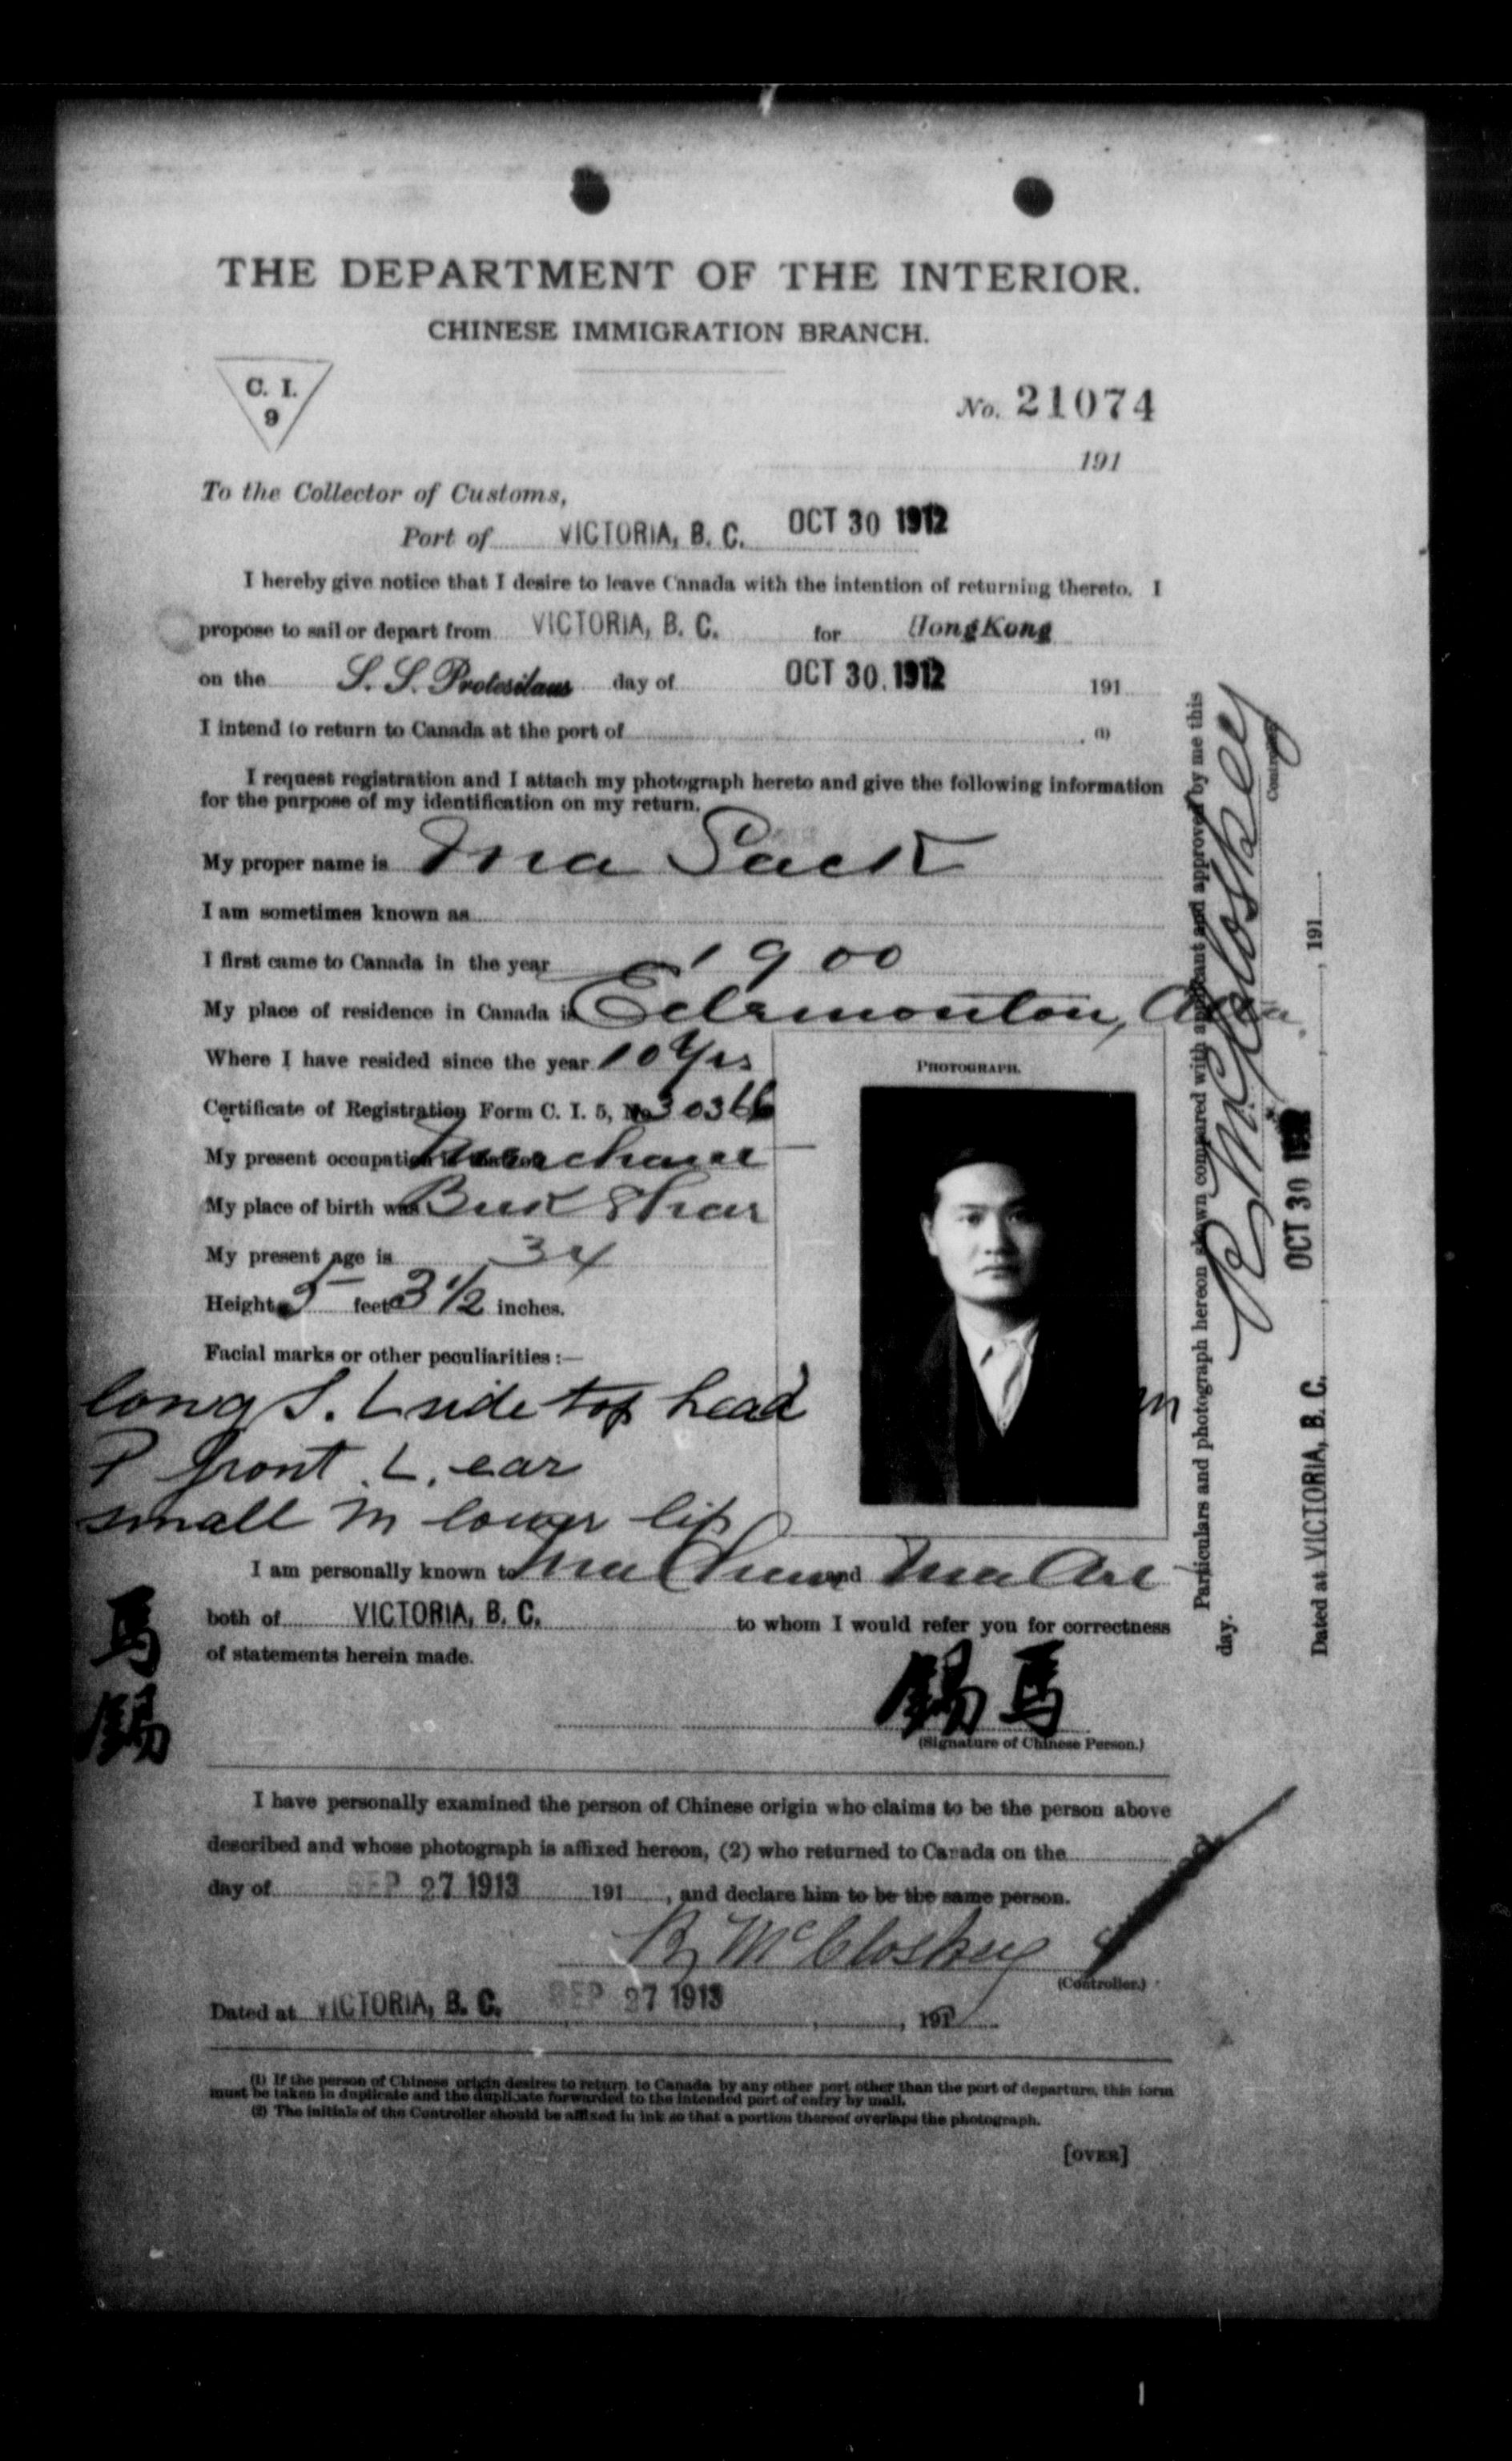 THE DEPARTMENT OF THE INTERIOR.
CHINESE IMMIGRATION BRANCH.
C. I.
9
No. 21074
191
To the Collector of Customs,
Port of VICTORIA, B. C. OCT 30 1912
I hereby give notice that I desire to leave Canada with the intention of returning thereto. I
propose to sail or depart from VICTORIA, B. C. for Hong Kong
on the S. S. Protesilaus day of OCT 30. 1912 191
I intend to return to Canada at the port of (1)
I request registration and I attach my photograph hereto and give the following information
for the purpose of my identification on my return.
My proper name is Ma Sack
I am sometimes known as
I first came to Canada in the year 1900
My place of residence in Canada is Edmonton, Alta
Where I have resided since the year 10 Yrs
PHOTOGRAPH.
Certificate of Registration Form C. I. 5, No
My present occupation Merchant
My place of birth was
My present age is 34
Height 5 feet 3 1/2 inches.
Facial marks or other peculiarities :—
long S. L side top head
P front L. ear
small m lower lip
I am personally known to Ma and Ma
both of VICTORIA, B. C. to whom I would refer you for correctness
of statements herein made.
馬錫
錫馬
(Signature of Chinese Person.)
I have personally examined the person of Chinese origin who claims to be the person above
described and whose photograph is affixed hereon, (2) who returned to Canada on the
day of SEP 27 1913 191 , and declare him to be the same person.
McCloskey
(Controller.)
Dated at VICTORIA, B. C. SEP 27 1913 , 191
(1) If the person of Chinese origin desires to return to Canada by any other port other than the port of departure, this form
must be taken in duplicate and the duplicate forwarded to the intended port of entry by mail.
(2) The initials of the Controller should be affixed in ink so that a portion thereof overlaps the photograph.
[OVER]
Particulars and photograph hereon shown compared with applicant and approved by me this
day.
McCloskey
Controller
Dated at VICTORIA, B. C. , OCT 30 1912 , 191